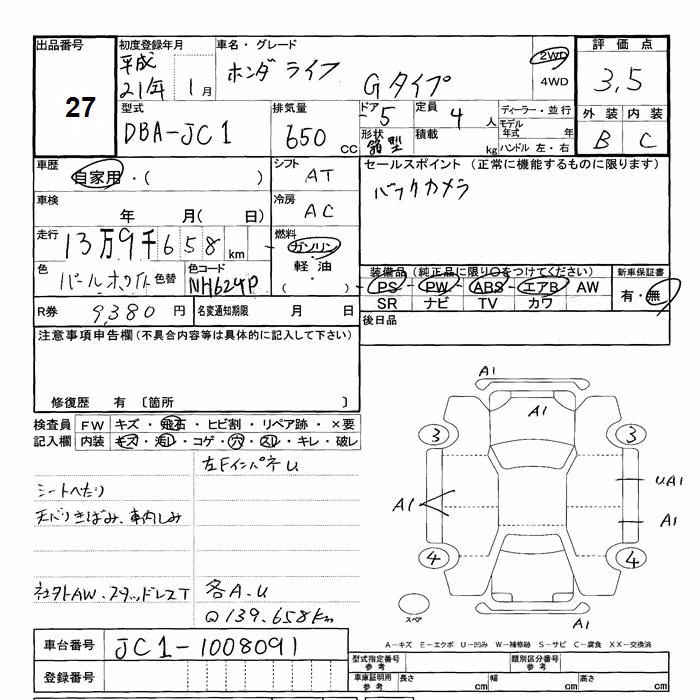 出品番号 27
初度登録年月 平成21年 1月
車名・グレード ホンダ ライフ Gタイプ
2WD 4WD
評価点 3.5
型式 DBA-JC1
排気量 650 cc
ドア 5
定員 4 人
形状 箱型
積載 kg
ディーラー・並行
モデル年式 年
ハンドル 左・右
外装 内装
B C
車歴 自家用・( )
シフト AT
セールスポイント (正常に機能するものに限ります)
バックカメラ
車検 年 月( 日)
冷房 AC
走行 13万9千658 km
燃料 ガソリン・軽油・( )
色 パールホワイト 色替
色コード NH624P
装備品 (純正品に限り○をつけてください)
PS PW ABS エアB AW
SR ナビ TV カワ
新車保証書 有・無
R券 9,380 円
名変通知期限 月 日
後日品
注意事項申告欄 (不具合内容等は具体的に記入して下さい)
修復歴 有 〔箇所 〕
検査員記入欄
FW キズ・飛石・ヒビ割・リペア跡・×要
内装 キズ・汚レ・コゲ・穴・スレ・キレ・破レ
左Fインパネ U
シートへたり
天バリきばみ、車内しみ
社外AW、スタッドレスT 各A、U
Q 139.658km
車台番号 JC1-1008091
登録番号
A1
A1
3 3
A1
UA1
A1
4 4
スペア
A1
A－キズ E－エクボ U－凹み W－補修跡 S－サビ C－腐食 XX－交換済
型式指定番号 参考
類別区分番号 参考
車庫証明用 参考
長さ cm 幅 cm 高さ cm